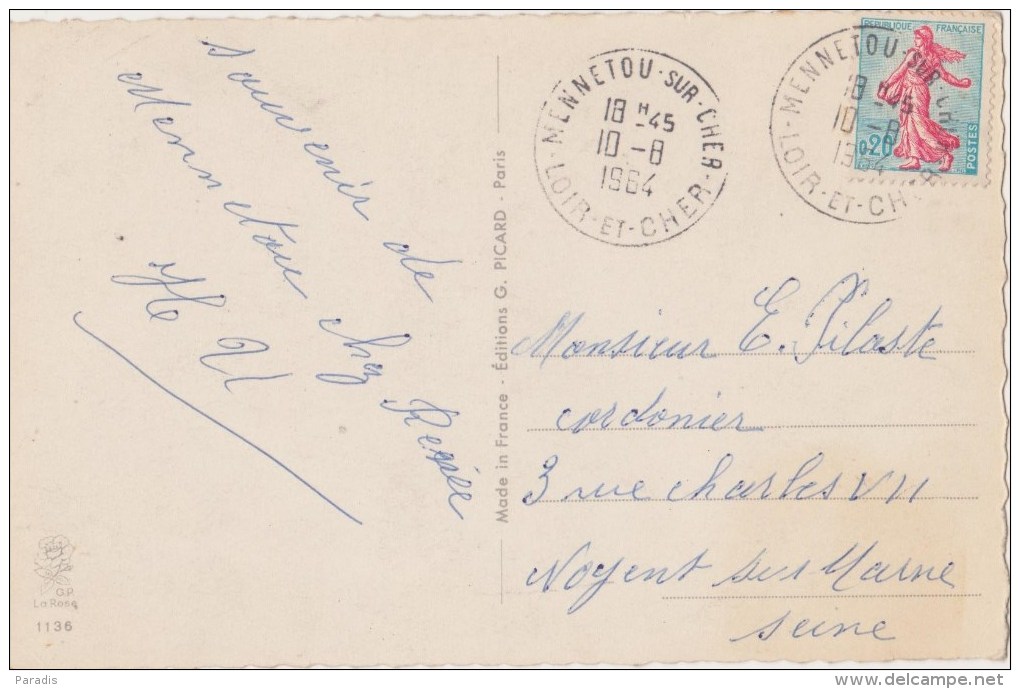 souvenir de
Mennetou chez Renée
MENNETOU-SUR-CHER
18 H-45
10-8
1964
LOIR-ET-CHER
MENNETOU-SUR-CHER
18 H-45
10-8
1964
LOIR-ET-CHER
REPUBLIQUE FRANÇAISE
0,20
POSTES
Made in France - Éditions G. PICARD - Paris
Monsieur E. Pilaste
cordonier
3 rue Charles VII
Nogent sur Marne
Seine
G.P.
La Rose
1136
Paradis
www.delcampe.net